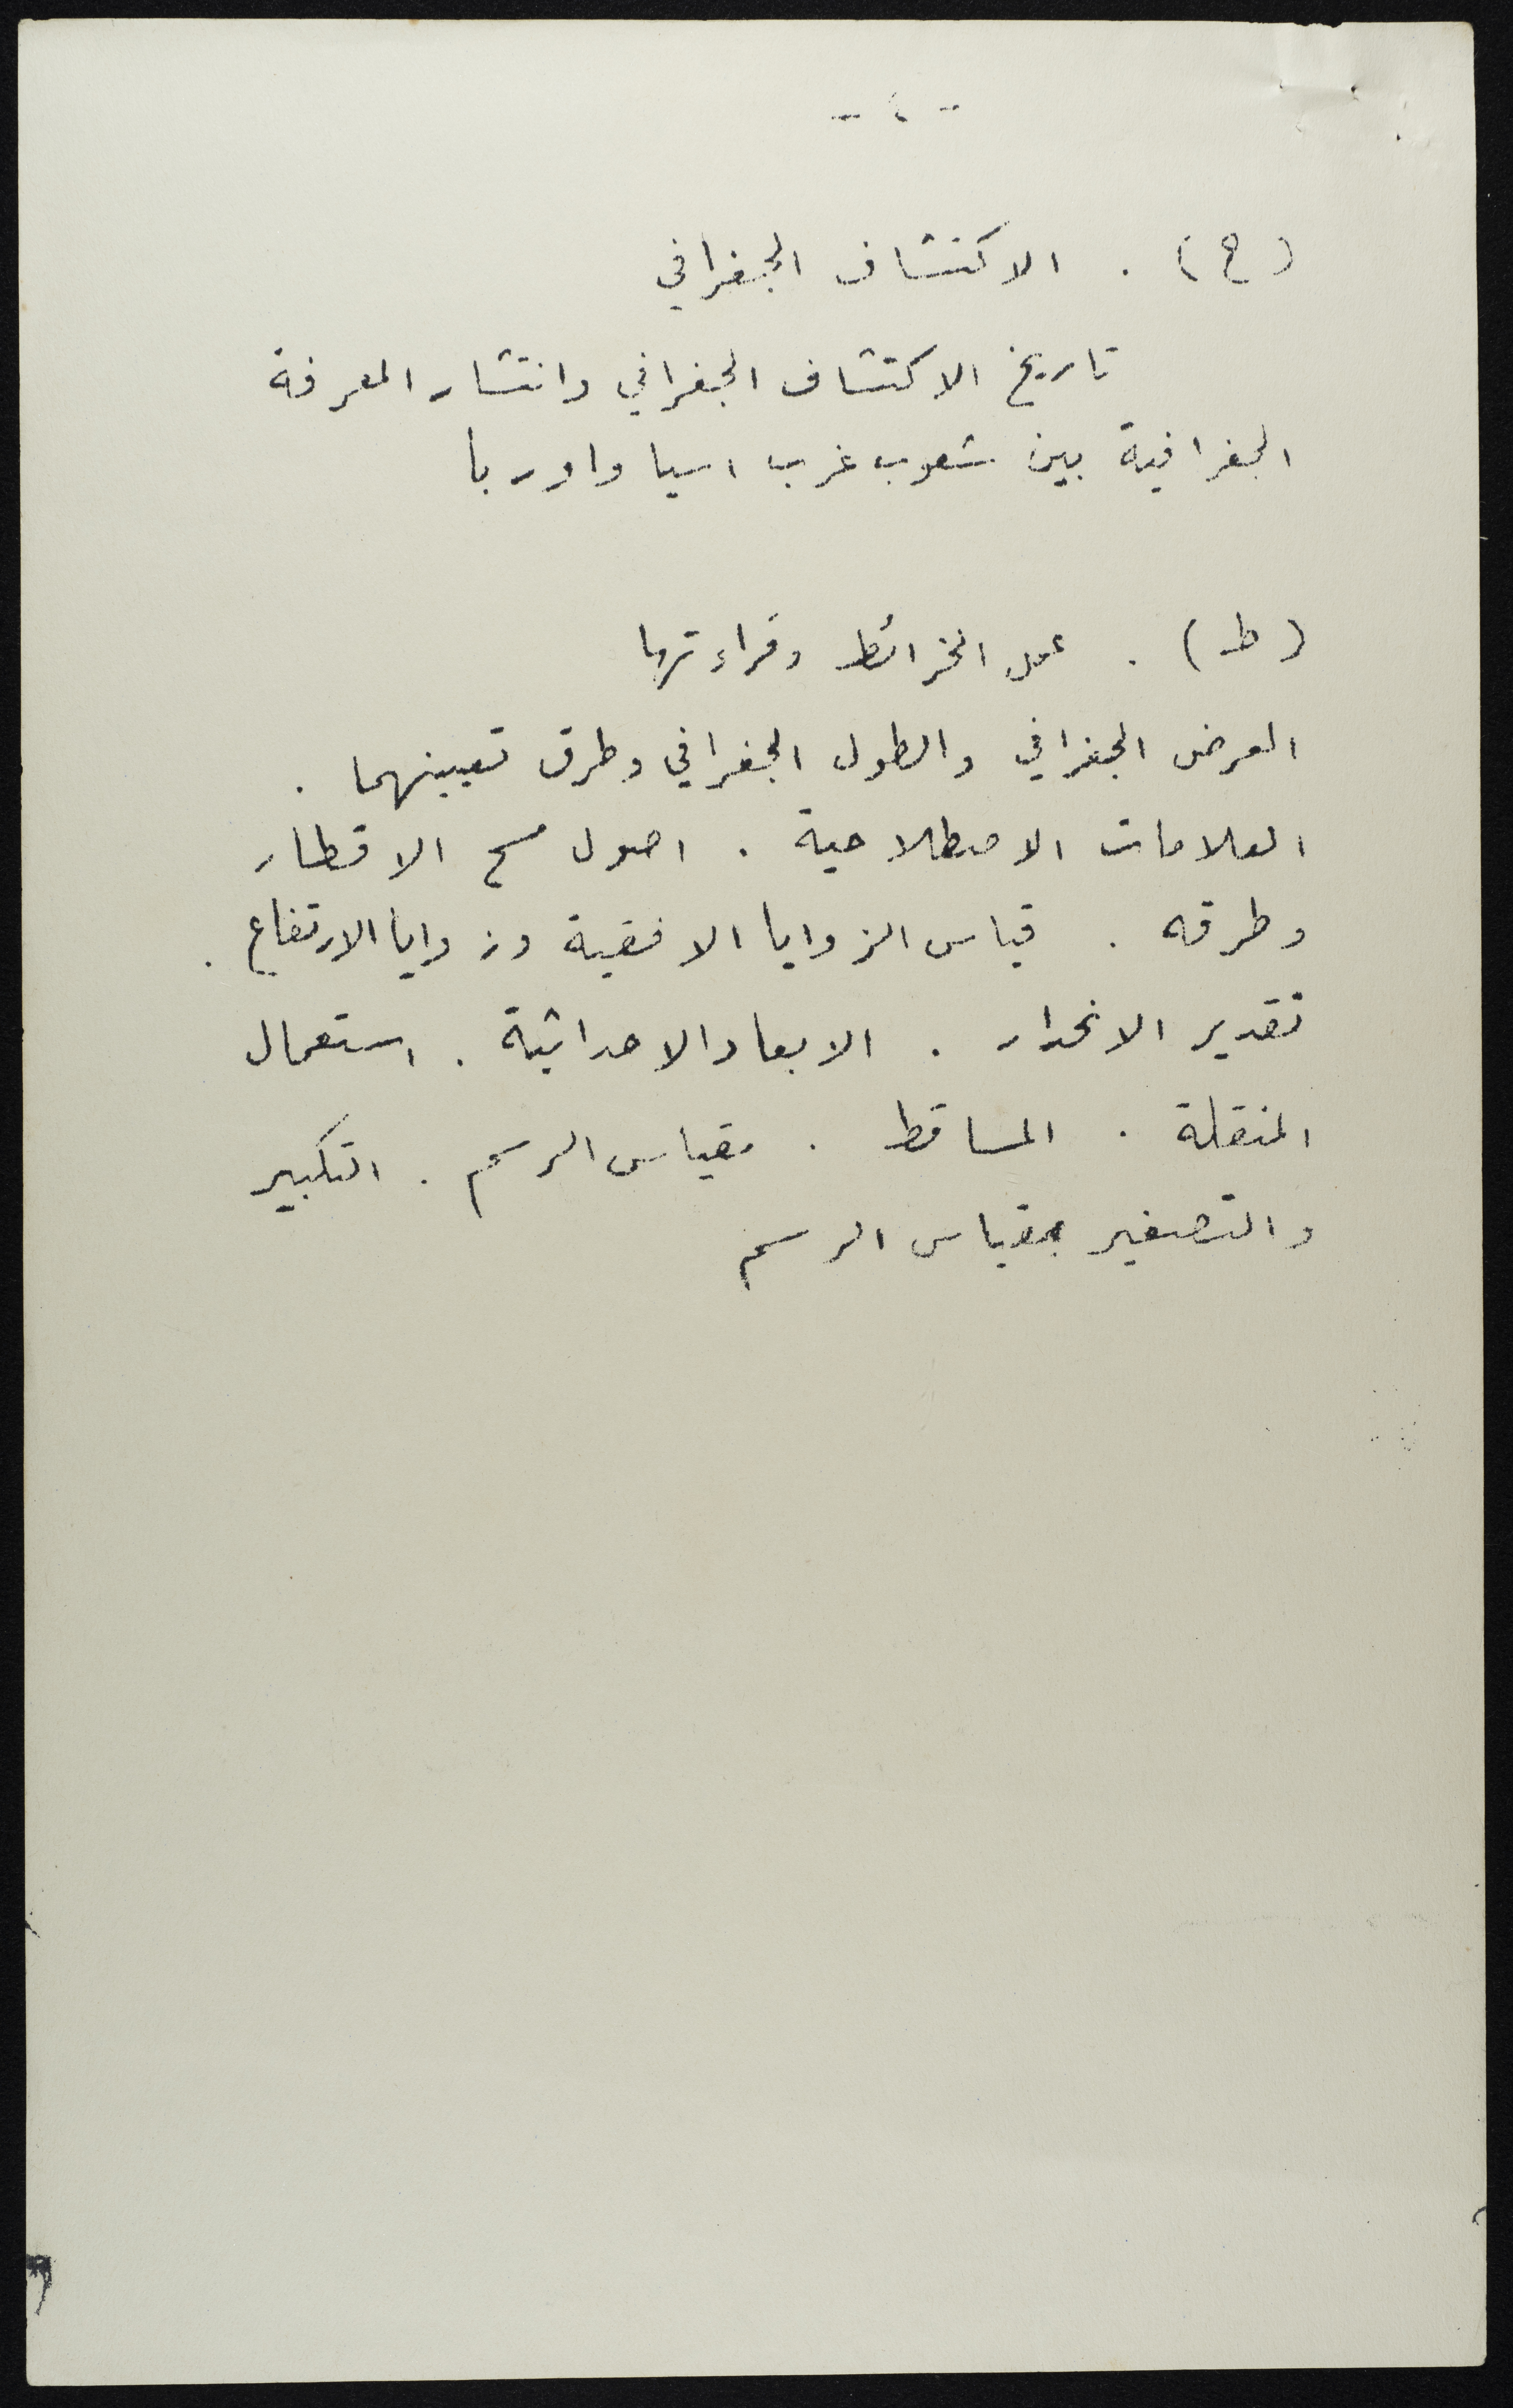 - ٤ -
(ح) . الاكتشاف الجغرافي
تاريخ الاكتشاف الجغرافي وانتشار المعرفة
الجغرافية بين شعوب غرب اسيا واوربا
(ط) . عمل الخرائط وقراءتها
العرض الجغرافي والطول الجغرافي وطرق تعيينهما .
العلامات الاصطلاحية . اصول مسح الاقطار
وطرقه . قياس الزوايا الافقية وزوايا الارتفاع .
تقدير الانحدار . الابعاد الاحداثية . استعمال
المنقلة . المساقط . مقياس الرسم . التكبير
والتصغير بمقياس الرسم